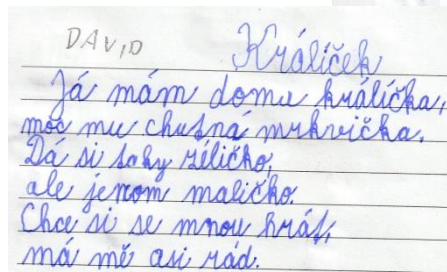 DAVID
Králíček
Já mám doma králíčka,
moc mu chutná mrkvička.
Dá si taky zéličko,
ale jenom maličko.
Chce si se mnou hrát,
má mě asi rád.